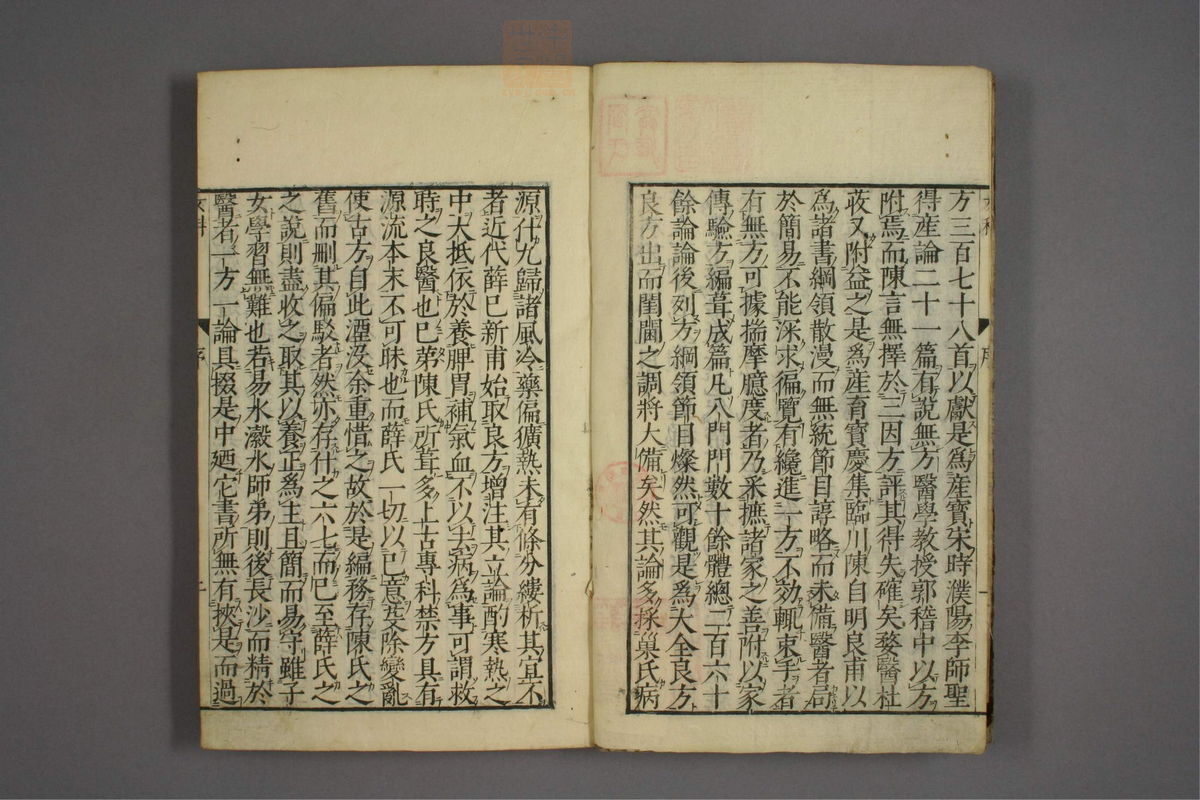 方三百七十八首以獻是爲産寶宋時濮陽李師聖
得産論二十一篇有說無方醫學教授郭稽中以方
附焉而陳言無擇於三因方評其得失確矣婺醫杜
茂又附益之是爲産育寶慶集臨川陳自明良甫以
爲諸書綱領散漫而無統節目諄略而未備醫者局
於簡易不能深求徧覽有纔進一方不効輒束手者
有無方可據揣摩臆度者乃采摭諸家之善附以家
傳驗方編葺成篇凡八門門數十餘體總二百六十
餘論論後列方綱領節目燦然可觀是爲大全良方
良方出而閨閫之調將大備矣然其論多採巢氏病
源什九歸諸風冷藥偏獷熱未有條分縷析其宜不
者近代薛已新甫始取良方增注其立論酌寒熱之
中大抵依於養脾胃補氣血不以去病爲事可謂救
時之良醫也已苐陳氏所葺多上古專科禁方具有
源流本末不可昧也而薛氏一切以已意芟除變亂
使古方自此湮没余重惜之故於是編務存陳氏之
舊而刪其偏駁者然亦存什之六七而已至薛氏之
之說則盡收之取其以養正爲主且簡而易守雖子
女學習無難也若易水瀫水師弟則後長沙而精於
醫者一方一論具掇是中廼它書所無有挾是而過
女科
序